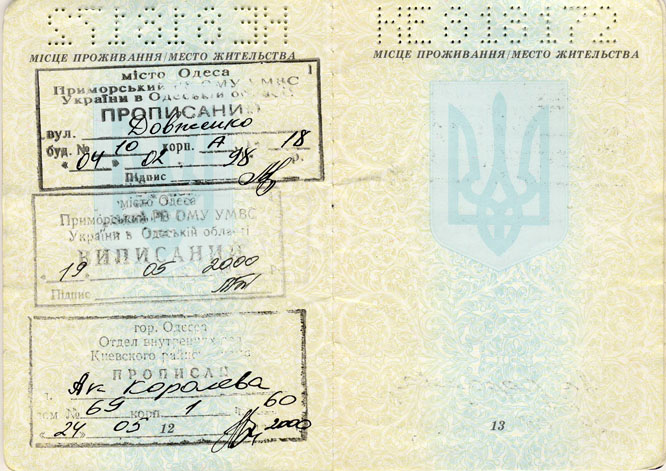 КЕ 818172
МІСЦЕ ПРОЖИВАННЯ/МЕСТО ЖИТЕЛЬСТВА
місто Одеса
Приморський РВ ОМУ УМВС
України в Одеській області
ПРОПИСАНИЙ
вул. Довженко
буд. № 10 корп. А 18
"04" 02 98 р.
Підпис
місто Одеса
Приморський РВ ОМУ УМВС
України в Одеській області
ВИПИСАНИЙ
"19" 05 2000
Підпис
гор. Одесса
Отдел внутренних дел
Киевского
ПРОПИСАН
Ак Королева
дом № 69 корп. 1 60
"24" 05 2000
12
КЕ 818172
МІСЦЕ ПРОЖИВАННЯ/МЕСТО ЖИТЕЛЬСТВА
13